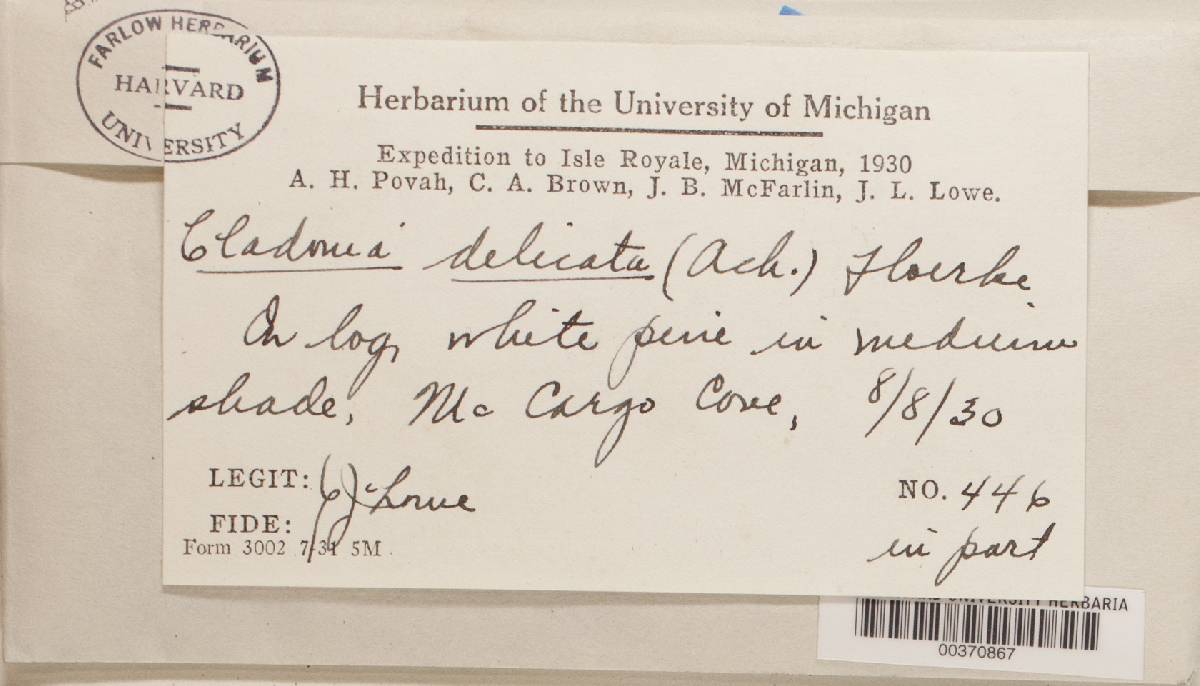 FARLOW HERBARIUM
HARVARD
UNIVERSITY
Herbarium of the University of Michigan
Expedition to Isle Royale, Michigan, 1930
A. H. Povah, C. A. Brown, J. B. McFarlin, J. L. Lowe.
Cladonia delicata (Ach.) Floerke
On log, white pine in medium
shade, Mc Cargo Cove, 8/8/30
LEGIT: Lowe
FIDE:
NO. 446
in part
Form 3002 7-31 5M
UNIVERSITY HERBARIA
00370867